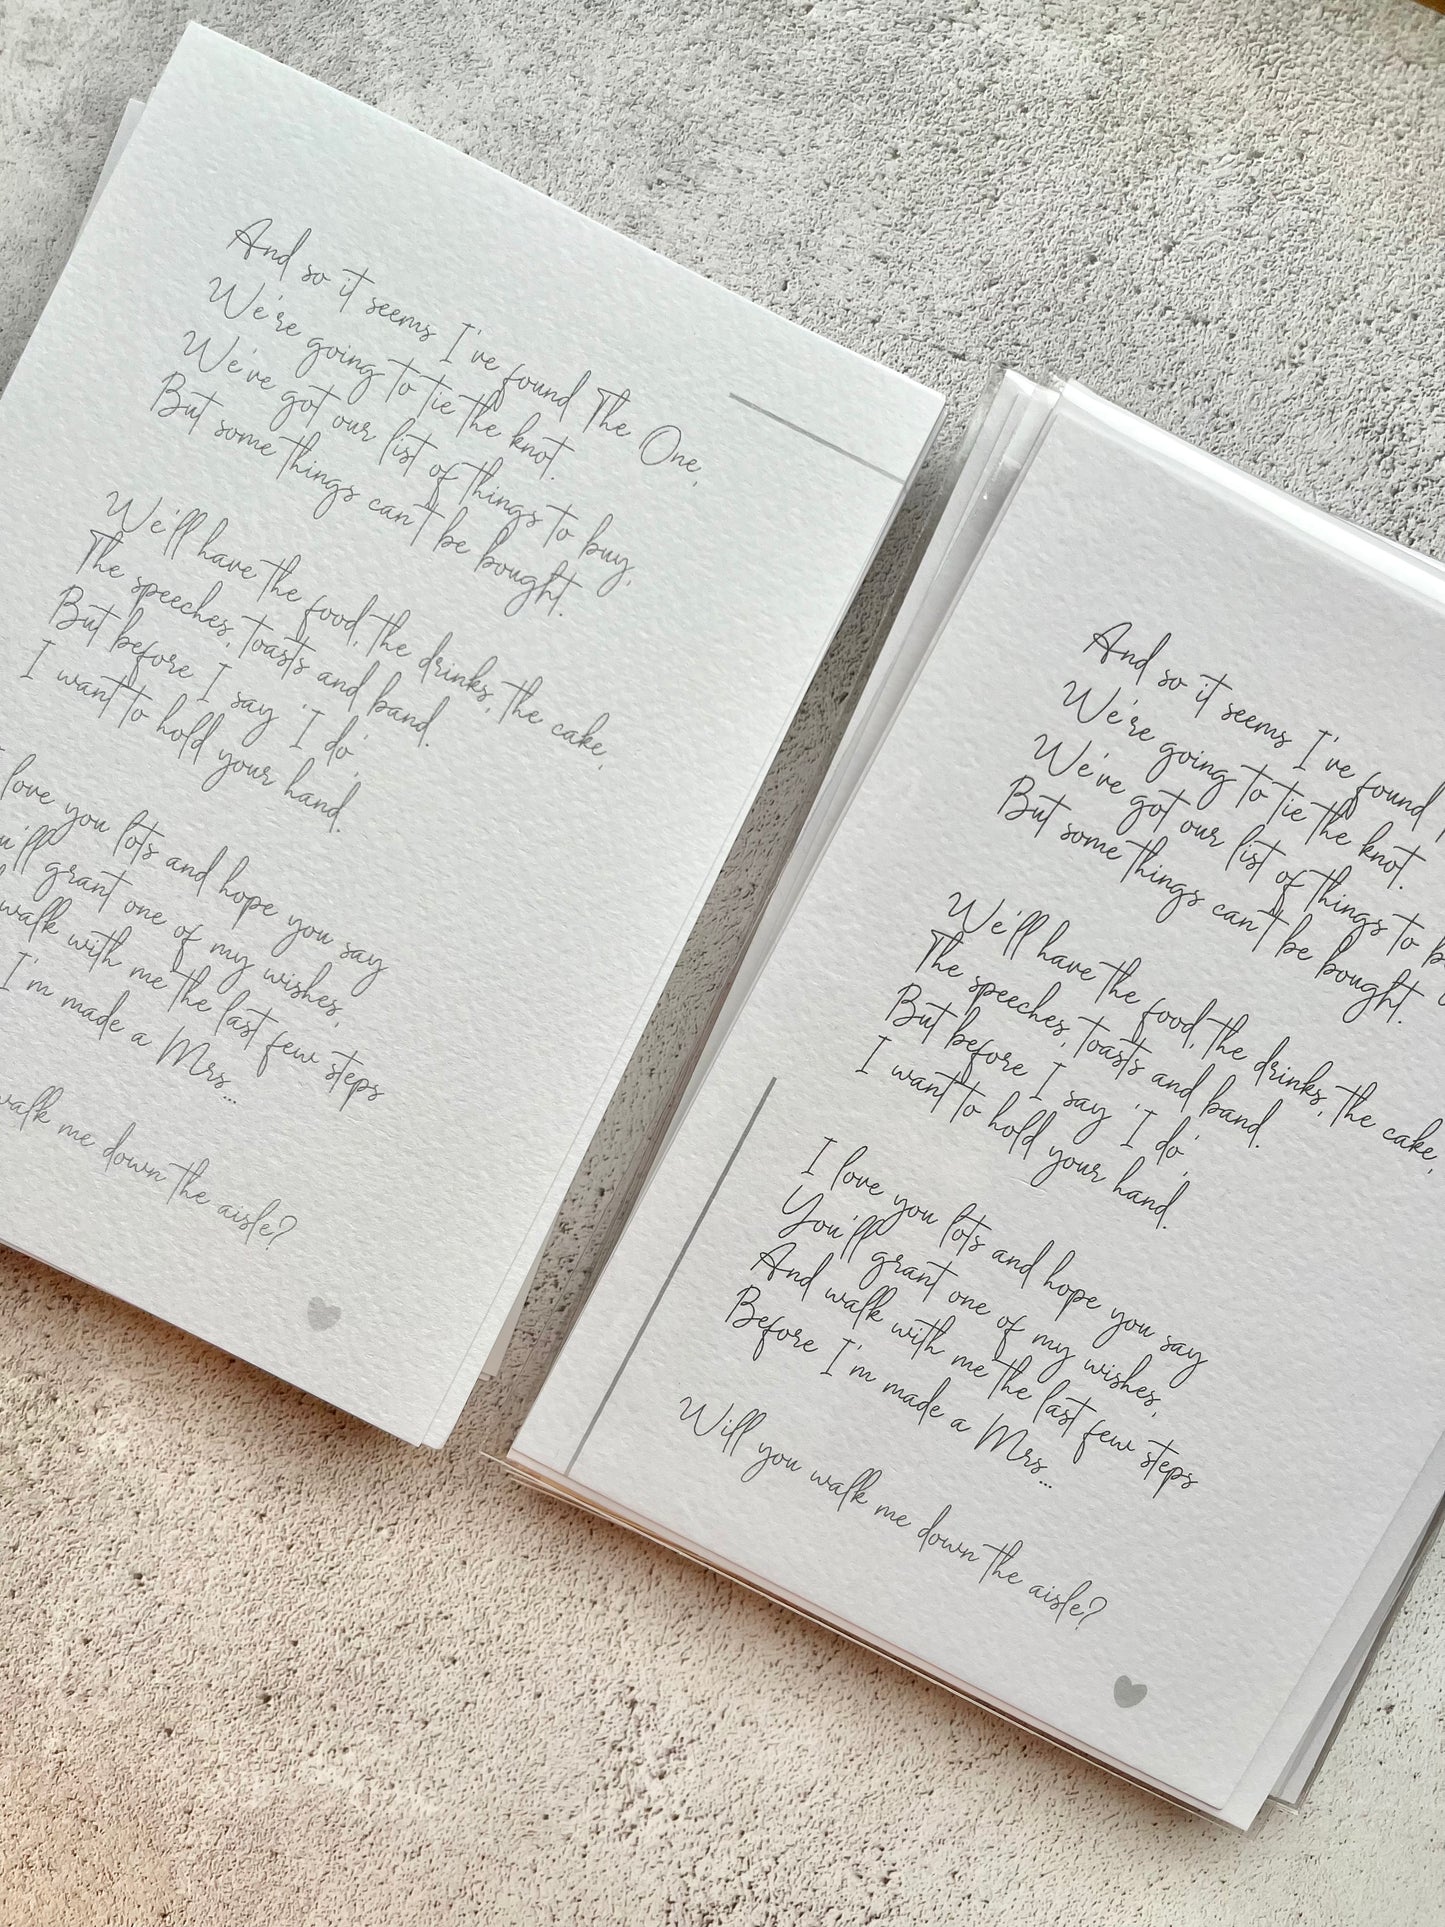 And so it seems I've found The One,
We're going to tie the knot.
We've got our list of things to buy,
But some things can't be bought.
We'll have the food, the drinks, the cake,
The speeches, toasts and band.
But before I say 'I do',
I want to hold your hand.
I love you lots and hope you say
You'll grant one of my wishes,
walk with me the last few steps
I'm made a Mrs...
walk me down the aisle?
And so it seems I've found
We're going to tie the knot.
We've got our list of things to b
But some things can't be bought.
We'll have the food, the drinks, the cake,
The speeches, toasts and band.
But before I say 'I do',
I want to hold your hand.
I love you lots and hope you say
You'll grant one of my wishes,
And walk with me the last few steps
Before I'm made a Mrs...
Will you walk me down the aisle?